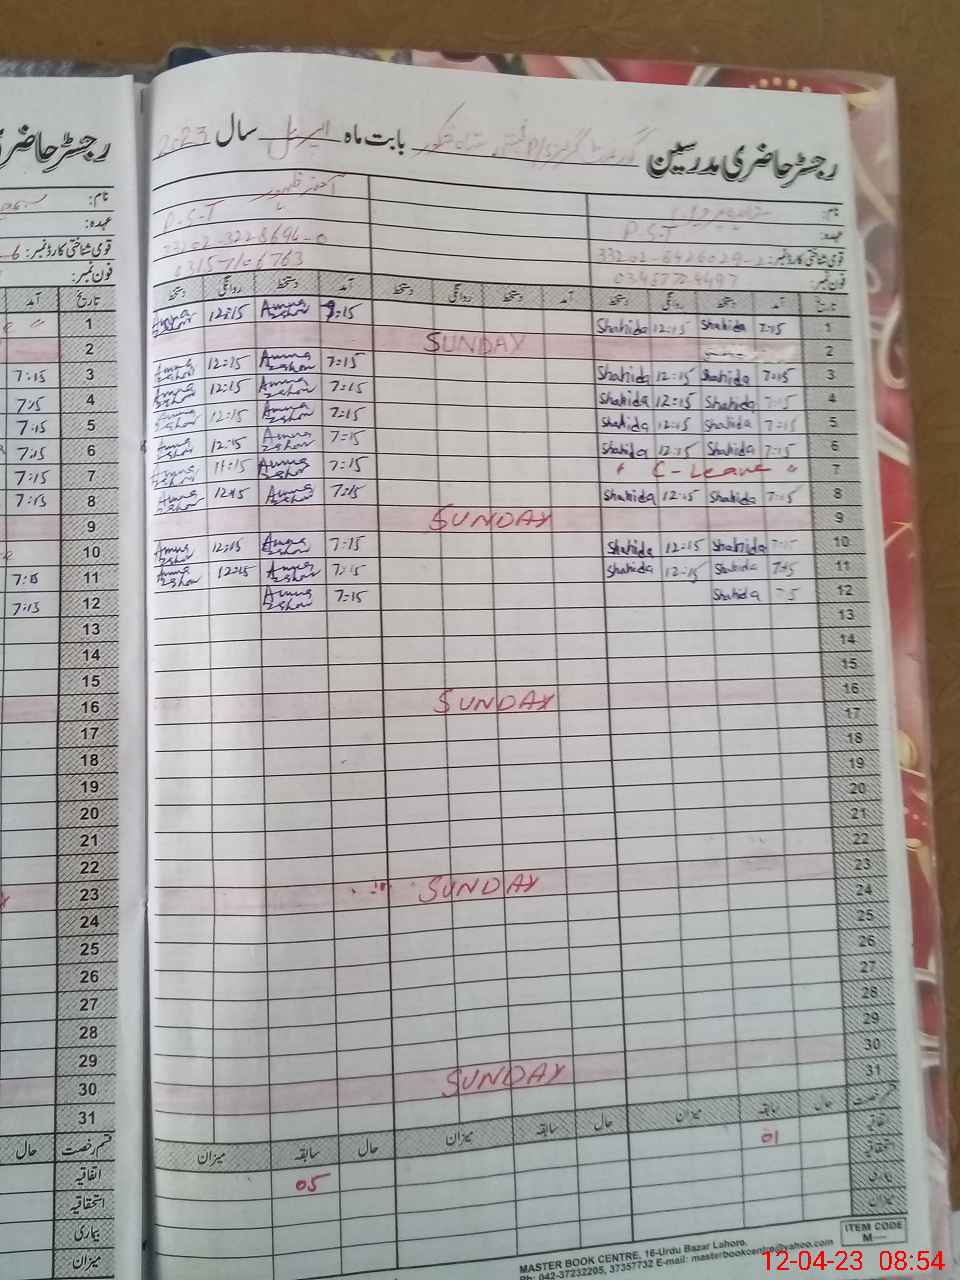 رجسٹر حاضری مدرسین بابت ماہ اپریل سال 2023
نام:
عہدہ: P.S.T P.S.T
قومی شناختی کارڈ نمبر:
فون نمبر: 03157106763
تاریخ آمد دستخط روانگی دستخط آمد دستخط روانگی دستخط آمد دستخط روانگی دستخط
1 7:15 Shahida 12:15 Shahida 7:15 Amna 12:15 Amna
2 SUNDAY
3 7:15 Shahida 12:15 Shahida 7:15 Amna 12:15 Amna
4 7:15 Shahida 12:15 Shahida 7:15 Amna 12:15 Amna
5 7:15 Shahida 12:15 Shahida 7:15 Amna 12:15 Amna
6 7:15 Shahida 12:15 Shahida 7:15 Amna 12:15 Amna
7 " C-Leave " 7:15 Amna 11:15 Amna
8 7:15 Shahida 12:15 Shahida 7:15 Amna 12:15 Amna
9 SUNDAY
10 7:15 Shahida 12:15 Shahida 7:15 Amna 12:15 Amna
11 7:15 Shahida 12:15 Shahida 7:15 Amna 12:15 Amna
12 Shahida 7:15 Amna
13
14
15
16 SUNDAY
17
18
19
20
21
22
23 SUNDAY
24
25
26
27
28
29
30 SUNDAY
31
قسم رخصت حال سابقہ میزان حال سابقہ میزان حال سابقہ میزان
اتفاقیہ 01 05
استحقاقیہ
بیماری
میزان
ITEM CODE
M—
MASTER BOOK CENTRE, 16-Urdu Bazar Lahore.
Ph: 042-37232205, 37357732 E-mail: masterbookcentre@yahoo.com
رجسٹر حاضری
نام:
عہدہ:
قومی شناختی کارڈ نمبر:
فون نمبر:
تاریخ آمد
1
2
3 7:15
4 7:15
5 7:15
6 7:15
7 7:15
8 7:15
9
10
11 7:15
12 7:15
13
14
15
16
17
18
19
20
21
22
23
24
25
26
27
28
29
30
31
قسم رخصت حال
اتفاقیہ
استحقاقیہ
بیماری
میزان
12-04-23 08:54